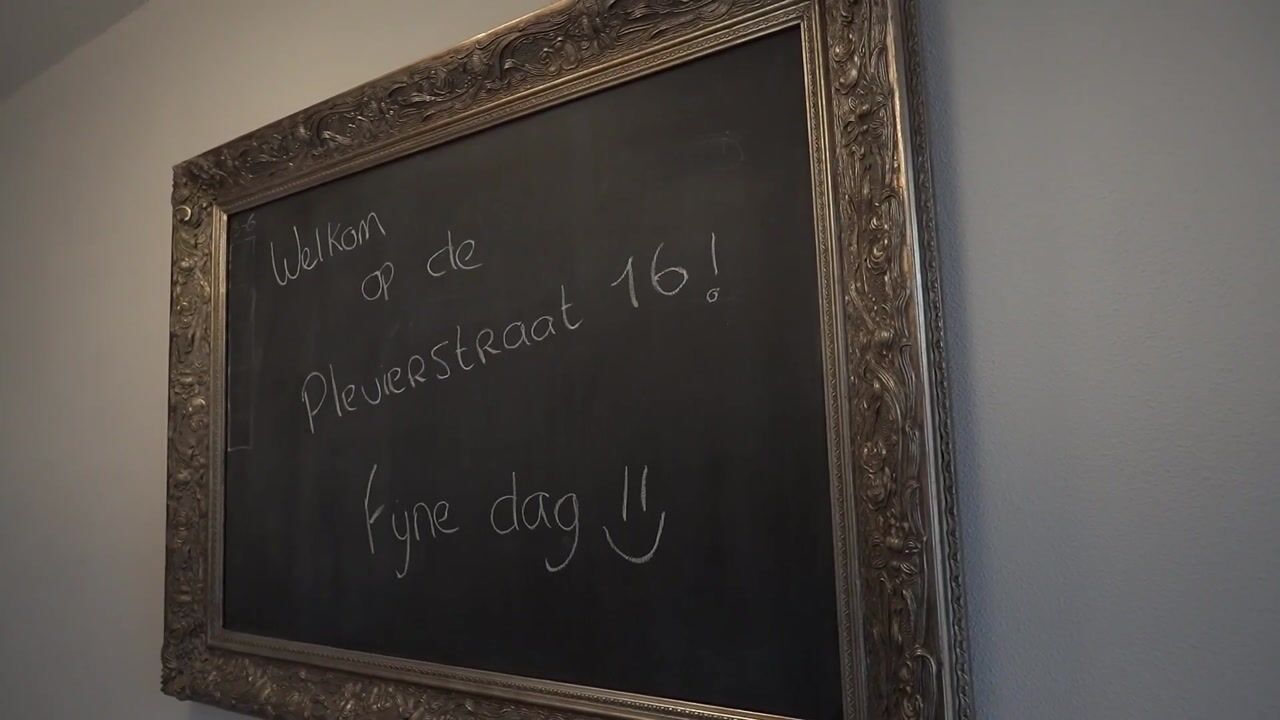 Welkom
op de
Plevierstraat 16!
Fyne dag